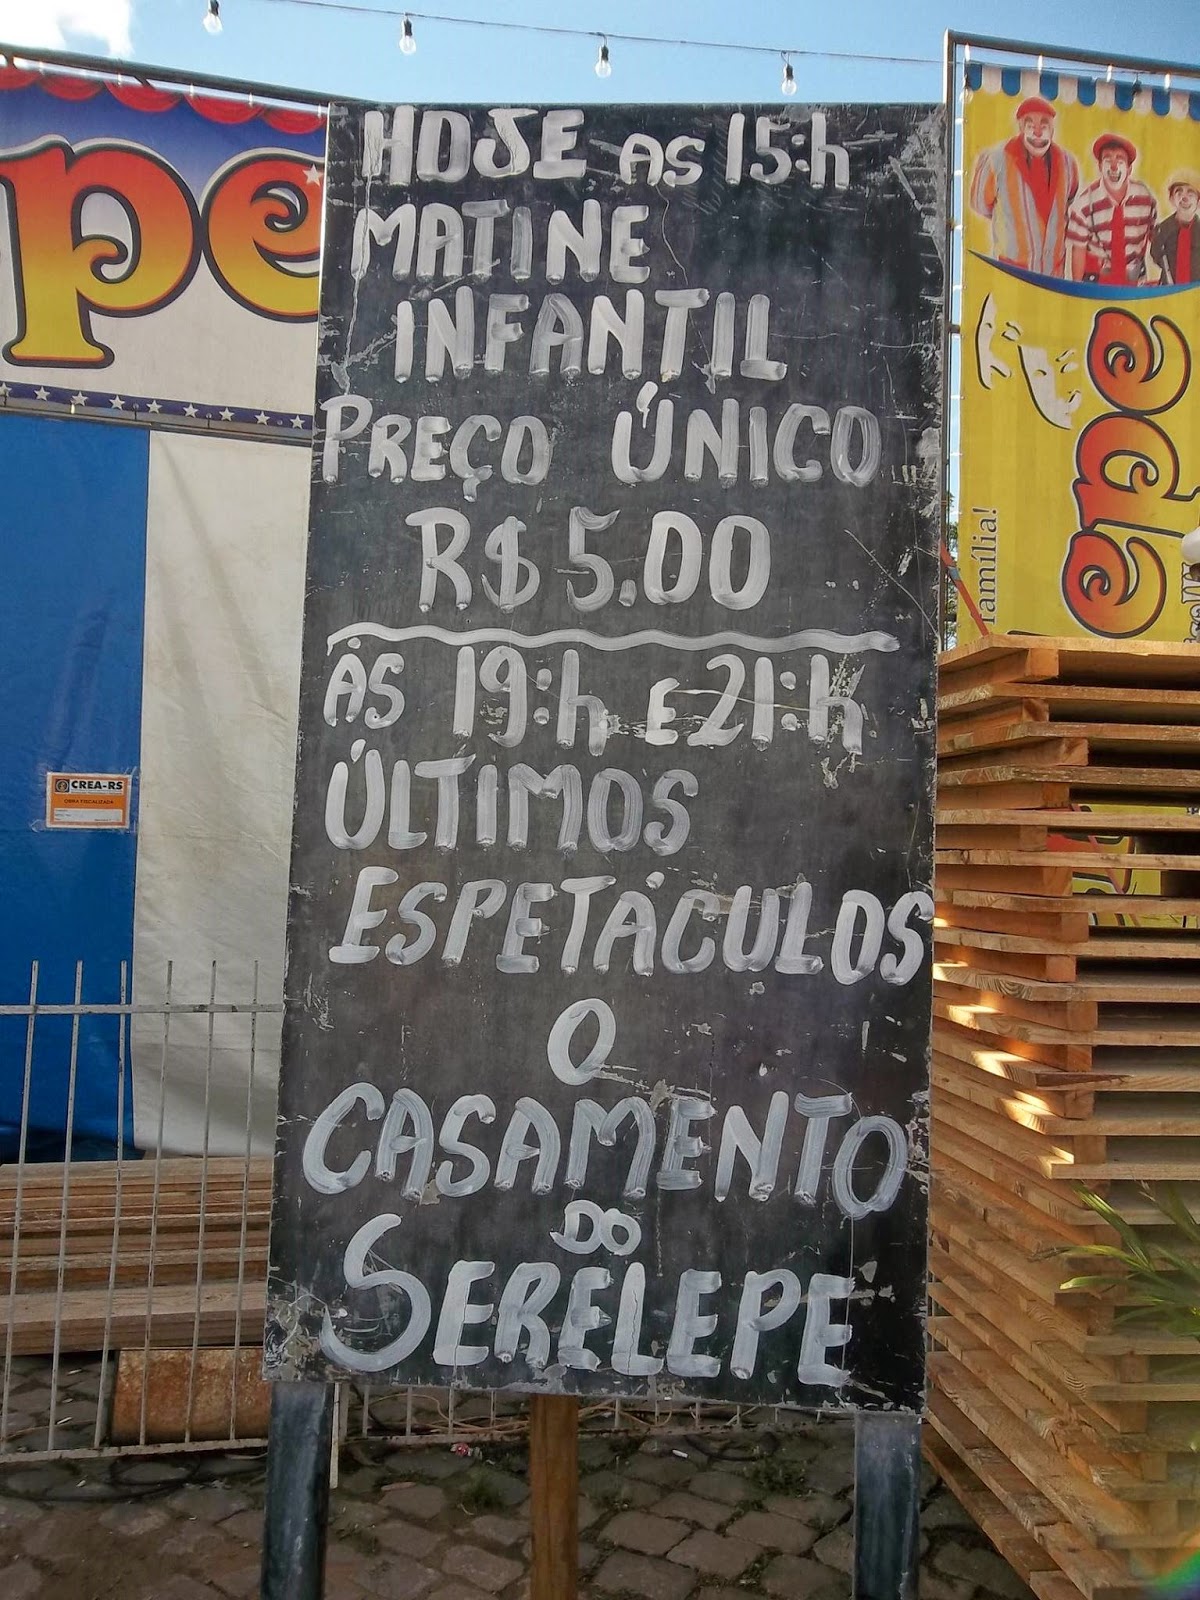 HOJE AS 15:h
MATINE
INFANTIL
PREÇO ÚNICO
R$ 5.00
ÀS 19:h E 21:h
ÚLTIMOS
ESPETÁCULOS
O
CASAMENTO
DO
SERELEPE
pe
CREA-RS
OBRA FISCALIZADA
família!
epe